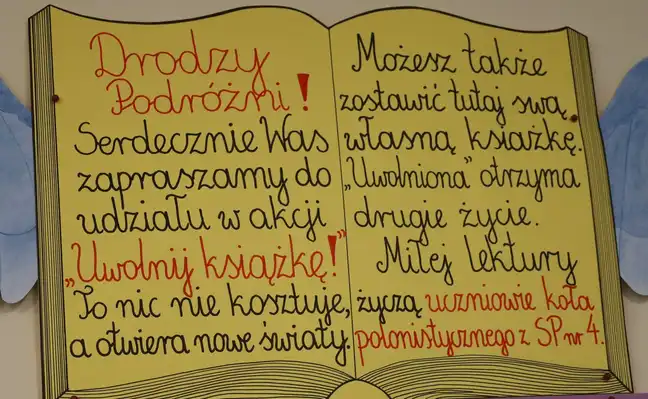 Drodzy
Podróżni!
Serdecznie Was
zapraszamy do
udziału w akcji
„Uwolnij książkę!”
To nic nie kosztuje,
a otwiera nowe światy.
Możesz także
zostawić tutaj swą
własną książkę.
„Uwolniona” otrzyma
drugie życie.
Miłej lektury
życzą uczniowie koła
polonistycznego z SP nr 4.